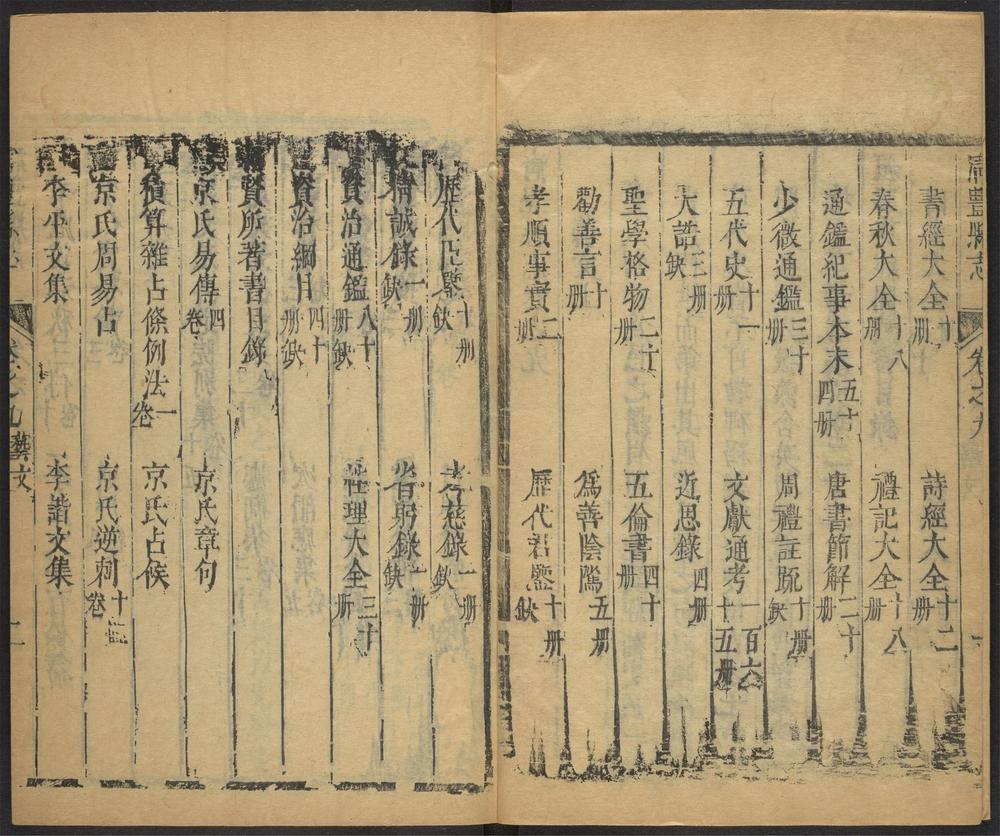 清豐縣志 卷之九
書經大全十冊 詩經大全十二冊
春秋大全十八冊 禮記大全十八冊
通鑑紀事本末五十四冊 唐書節解二十冊
少微通鑑三十冊 周禮註疏十冊缺
五代史十一冊 文獻通考一百六十五冊
大誥三冊缺 近思錄四冊
聖學格物二十冊 五倫書四十冊
勸善言十冊 為善陰隲五冊
孝順事實二冊 歷代君鑒十冊缺
歷代臣鑒十冊缺 孝慈錄一冊缺
誡錄一冊缺 省躬錄一冊缺
資治通鑑八十冊缺 性理大全三十冊
資治綱目四十冊缺
賢所著書目錄
京氏易傳四卷 京氏章句
積算雜占條例法一卷 京氏占候
京氏周易占 京氏逆刺十二卷
李平文集 李諧文集
卷之九 藝文 二